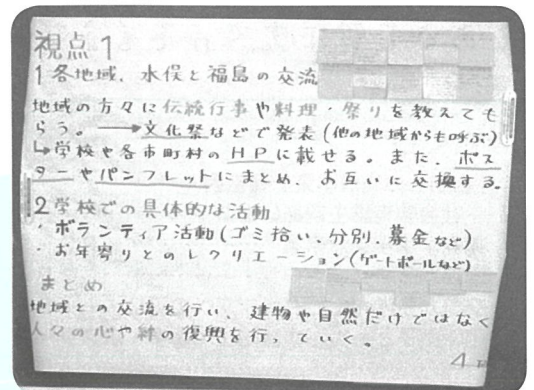 視点1
1 各地域、水俣と福島の交流
地域の方々に伝統行事や料理・祭りを教えても
らう。→文化祭などで発表(他の地域からも呼ぶ)
↳学校や各市町村のHPに載せる。また、ポス
ターやパンフレットにまとめ、お互いに交換する。
2 学校での具体的な活動
・ボランティア活動(ゴミ拾い、分別、募金など)
・お年寄りとのレクリエーション(ゲートボールなど)
まとめ
地域との交流を行い、建物や自然だけではなく
人々の心や絆の復興を行っていく。
4